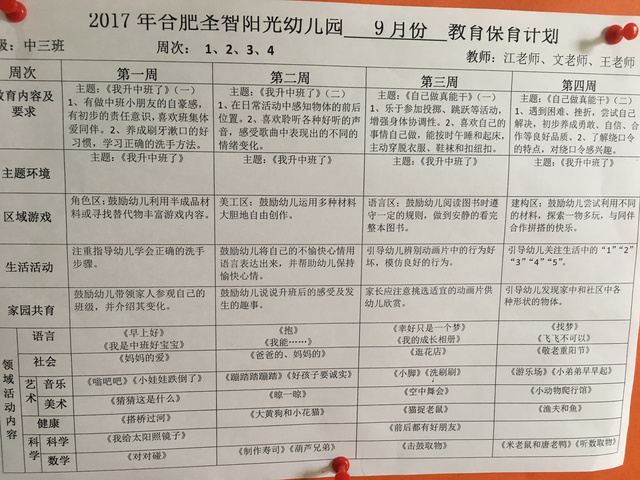 2017年合肥圣智阳光幼儿园 9月份 教育保育计划
级：中三班 周次： 1、2、3、4 教师：江老师、文老师、王老师
周次 第一周 第二周 第三周 第四周
教育内容及要求
主题：《我升中班了》（一）
1、有做中班小朋友的自豪感，
有初步的责任意识，喜欢班集体
爱同伴。2、养成刷牙漱口的好
习惯，学习正确的洗手方法。
主题：《我升中班了》（二）
1、在日常活动中感知物体的前后
位置。2、喜欢聆听各种好听的声
音，感受歌曲中表现出的不同的
情绪变化。
主题：《自己做真能干》（一）
1、乐于参加投掷、跳跃等活动，
增强身体协调性。2、喜欢自己的
事情自己做，能按时午睡和起床，
主动穿脱衣服、鞋袜和扣纽扣。
主题：《自己做真能干》（二）
1、遇到困难、挫折，尝试自己
解决，初步养成勇敢、自信、合作
等良好品质。2、了解绕口令
的特点，对绕口令感兴趣。
主题环境 主题：《我升中班了》 主题：《我升中班了》 主题：《我升中班了》 主题：《我升中班了》
区域游戏
角色区：鼓励幼儿利用半成品材
料或寻找替代物丰富游戏内容。
美工区：鼓励幼儿运用多种材料
大胆地自由创作。
语言区：鼓励幼儿阅读图书时遵
守一定的规则，做到安静的看完
整本图书。
建构区：鼓励幼儿尝试利用不同
的材料，探索一物多玩，与同伴
合作拼搭的快乐。
生活活动
注重指导幼儿学会正确的洗手
步骤。
鼓励幼儿将自己的不愉快心情用
语言表达出来，并帮助幼儿保持
愉快心情。
引导幼儿辨别动画片中的行为好
坏，模仿良好的行为。
引导幼儿关注生活中的“1”“2”
“3”“4”“5”。
家园共育
鼓励幼儿带领家人参观自己的
班级，并介绍其变化。
鼓励幼儿说说升班后的感受及发
生的趣事。
家长应注意挑选适宜的动画片供
幼儿欣赏。
引导幼儿发现家中和社区中各
种形状的物体。
领域活动内容
语言
《早上好》
《我是中班好宝宝》
《抱》
《我能……》
《幸好只是一个梦》
《我的成长相册》
《找梦》
《飞飞不可以》
社会 《妈妈的爱》 《爸爸的、妈妈的》 《逛花店》 《敬老重阳节》
艺术 音乐 《嗡吧吧》《小娃娃跌倒了》 《蹦蹦踏蹦蹦》《好孩子要诚实》 《小脚》《洗刷刷》 《游乐场》《小弟弟早早起》
美术 《猜猜这是什么》 《晾一晾》 《空中舞会》 《小动物爬行馆》
健康 《搭桥过河》 《大黄狗和小花猫》 《猫捉老鼠》 《渔夫和鱼》
科学 科学 《我给太阳照镜子》 《前后都有好朋友》
数学 《对对碰》 《制作寿司》《葫芦兄弟》 《击鼓取物》 《米老鼠和唐老鸭》《听数取物》